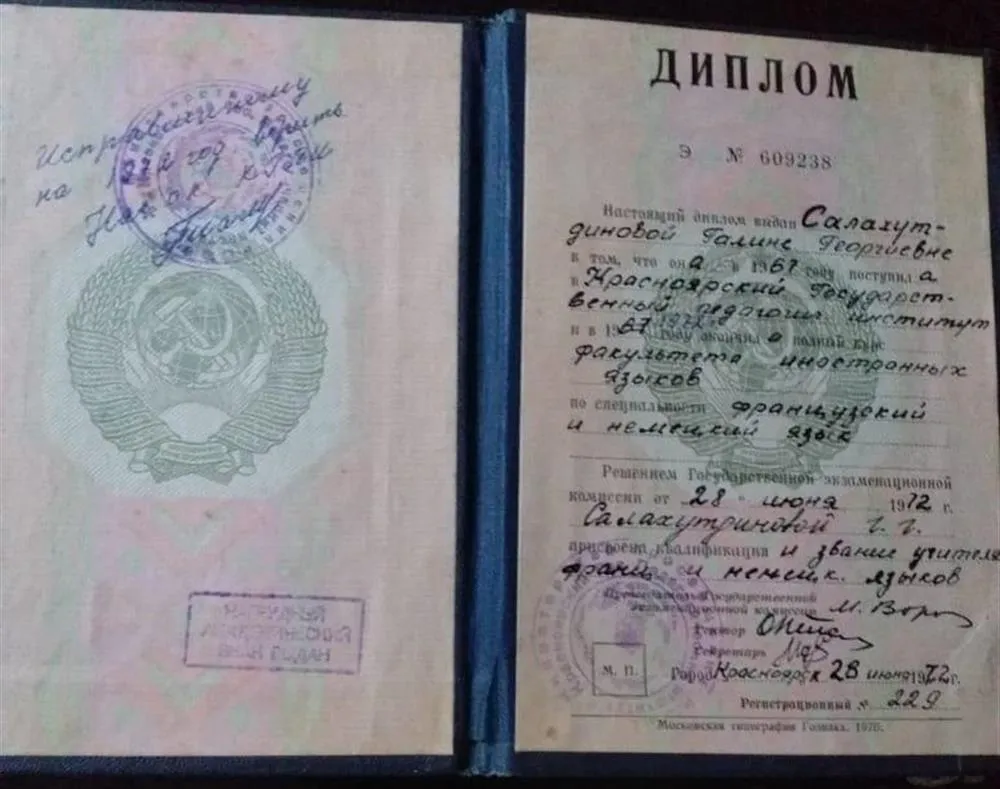 Исправленному
на 1972 год верить
Нач. ок
НАГРУДНЫЙ
АКАДЕМИЧЕСКИЙ
ЗНАК ВЫДАН
ДИПЛОМ
Э № 609238
Настоящий диплом выдан Салахут-
диновой Галине Георгиевне
в том, что он а в 1967 году поступил а
в Красноярский Государст-
венный педагогич. институт
и в 19 году окончил а полный курс
факультета иностранных
языков
по специальности французский
и немецкий язык
Решением Государственной экзаменационной
комиссии от 28 " июня 1972 г.
Салахутдиновой Г. Г.
присвоена квалификация и звание учителя
франц. и немецк. языков
Председатель Государственной
экзаменационной комиссии
Ректор
Секретарь
М. П.
Город Красноярск 28 июня 1972 г.
Регистрационный № 229
Московская типография Гознака. 1970.